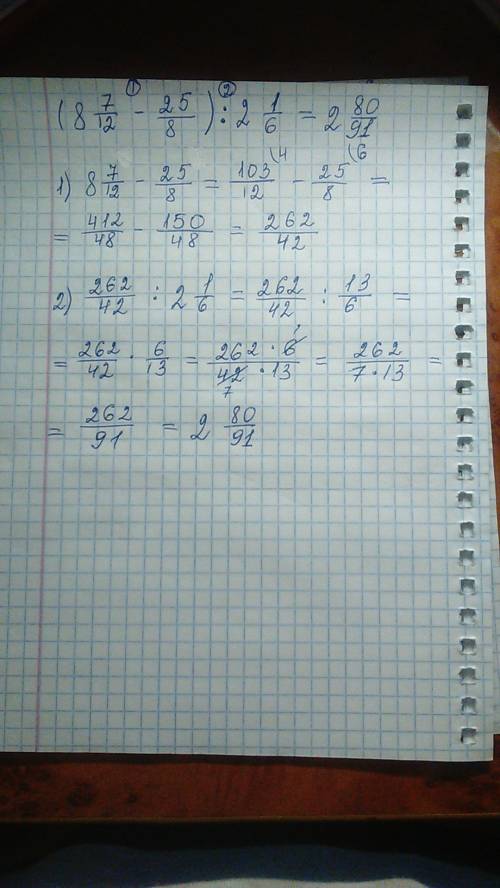 (8 7/12 - 25/8) : 2 1/6 = 2 80/91
① ②
1) 8 7/12 - 25/8 = 103/12 (4 - 25/8 (6 =
= 412/48 - 150/48 = 262/42
2) 262/42 : 2 1/6 = 262/42 : 13/6 =
= 262/42 · 6/13 = 262 · 6 1/42 7 · 13 = 262/7 · 13 =
= 262/91 = 2 80/91